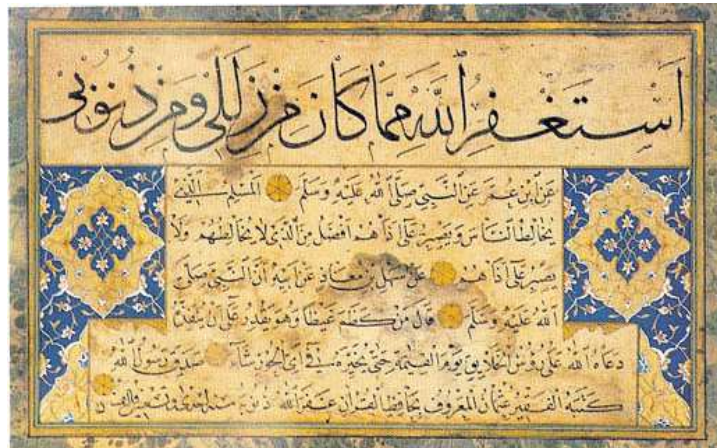 اَسْتَغْفِرُ اللهَ مِمَّا كَانَ مِنْ زَلَلِي وَمِنْ ذُنُوبِي
عَنِ ابْنِ عُمَرَ عَنِ النَّبِيِّ صَلَّى اللهُ عَلَيْهِ وَسَلَّمَ الْمُسْلِمُ الَّذِي
يُخَالِطُ النَّاسَ وَيَصْبِرُ عَلَى أَذَاهُمْ أَفْضَلُ مِنَ الَّذِي لَا يُخَالِطُهُمْ وَلَا
يَصْبِرُ عَلَى أَذَاهُمْ عَنْ سَهْلِ بْنِ مُعَاذٍ عَنْ أَبِيهِ أَنَّ النَّبِيَّ صَلَّى
اللهُ عَلَيْهِ وَسَلَّمَ قَالَ مَنْ كَظَمَ غَيْظًا وَهُوَ يَقْدِرُ عَلَى أَنْ يُنَفِّذَهُ
دَعَاهُ اللهُ عَلَى رُؤُسِ الْخَلَايِقِ يَوْمَ الْقِيٰمَةِ حَتَّى يُخَيِّرَهُ فِي أَيِّ الْحُورِ شَاءَ صَدَقَ رَسُولُ اللهِ
كَتَبَهُ الْفَقِيرُ عُثْمَانُ الْمَعْرُوفُ بِحَافِظِ الْقُرْآنِ غَفَرَ اللهُ ذُنُوبَهُ